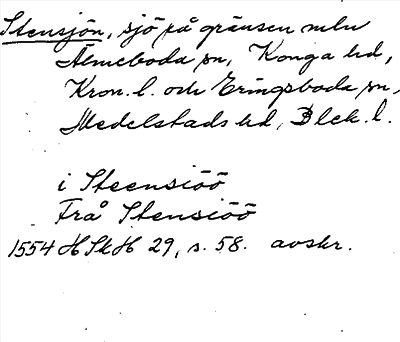 Stensjön, sjö på gränsen mln
Älmeboda sn, Konga hd,
Kron. l. och Eringsboda sn,
Medelstads hd, Blek. l.
i Steensiöö
Frå Stensiöö
1554 HSkH 29, s. 58. avskr.